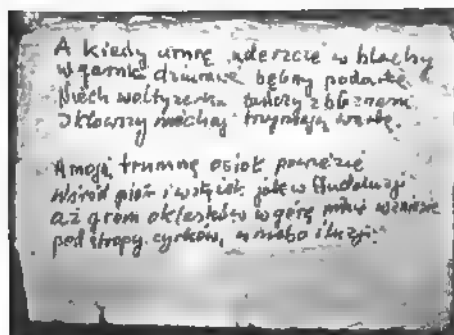 A kiedy umrę uderzcie w blachy
w garnki dziurawe bębny podarte
Niech woltyżerka tańczy z błaznem
I klowni niechaj trzymają wartę.
A moją trumnę osioł powiezie
wśród piór i wstążek jak w Andaluzji
aż grom oklasków w górę mnie wzniesie
pod stropy cyrków, w niebo iluzji.